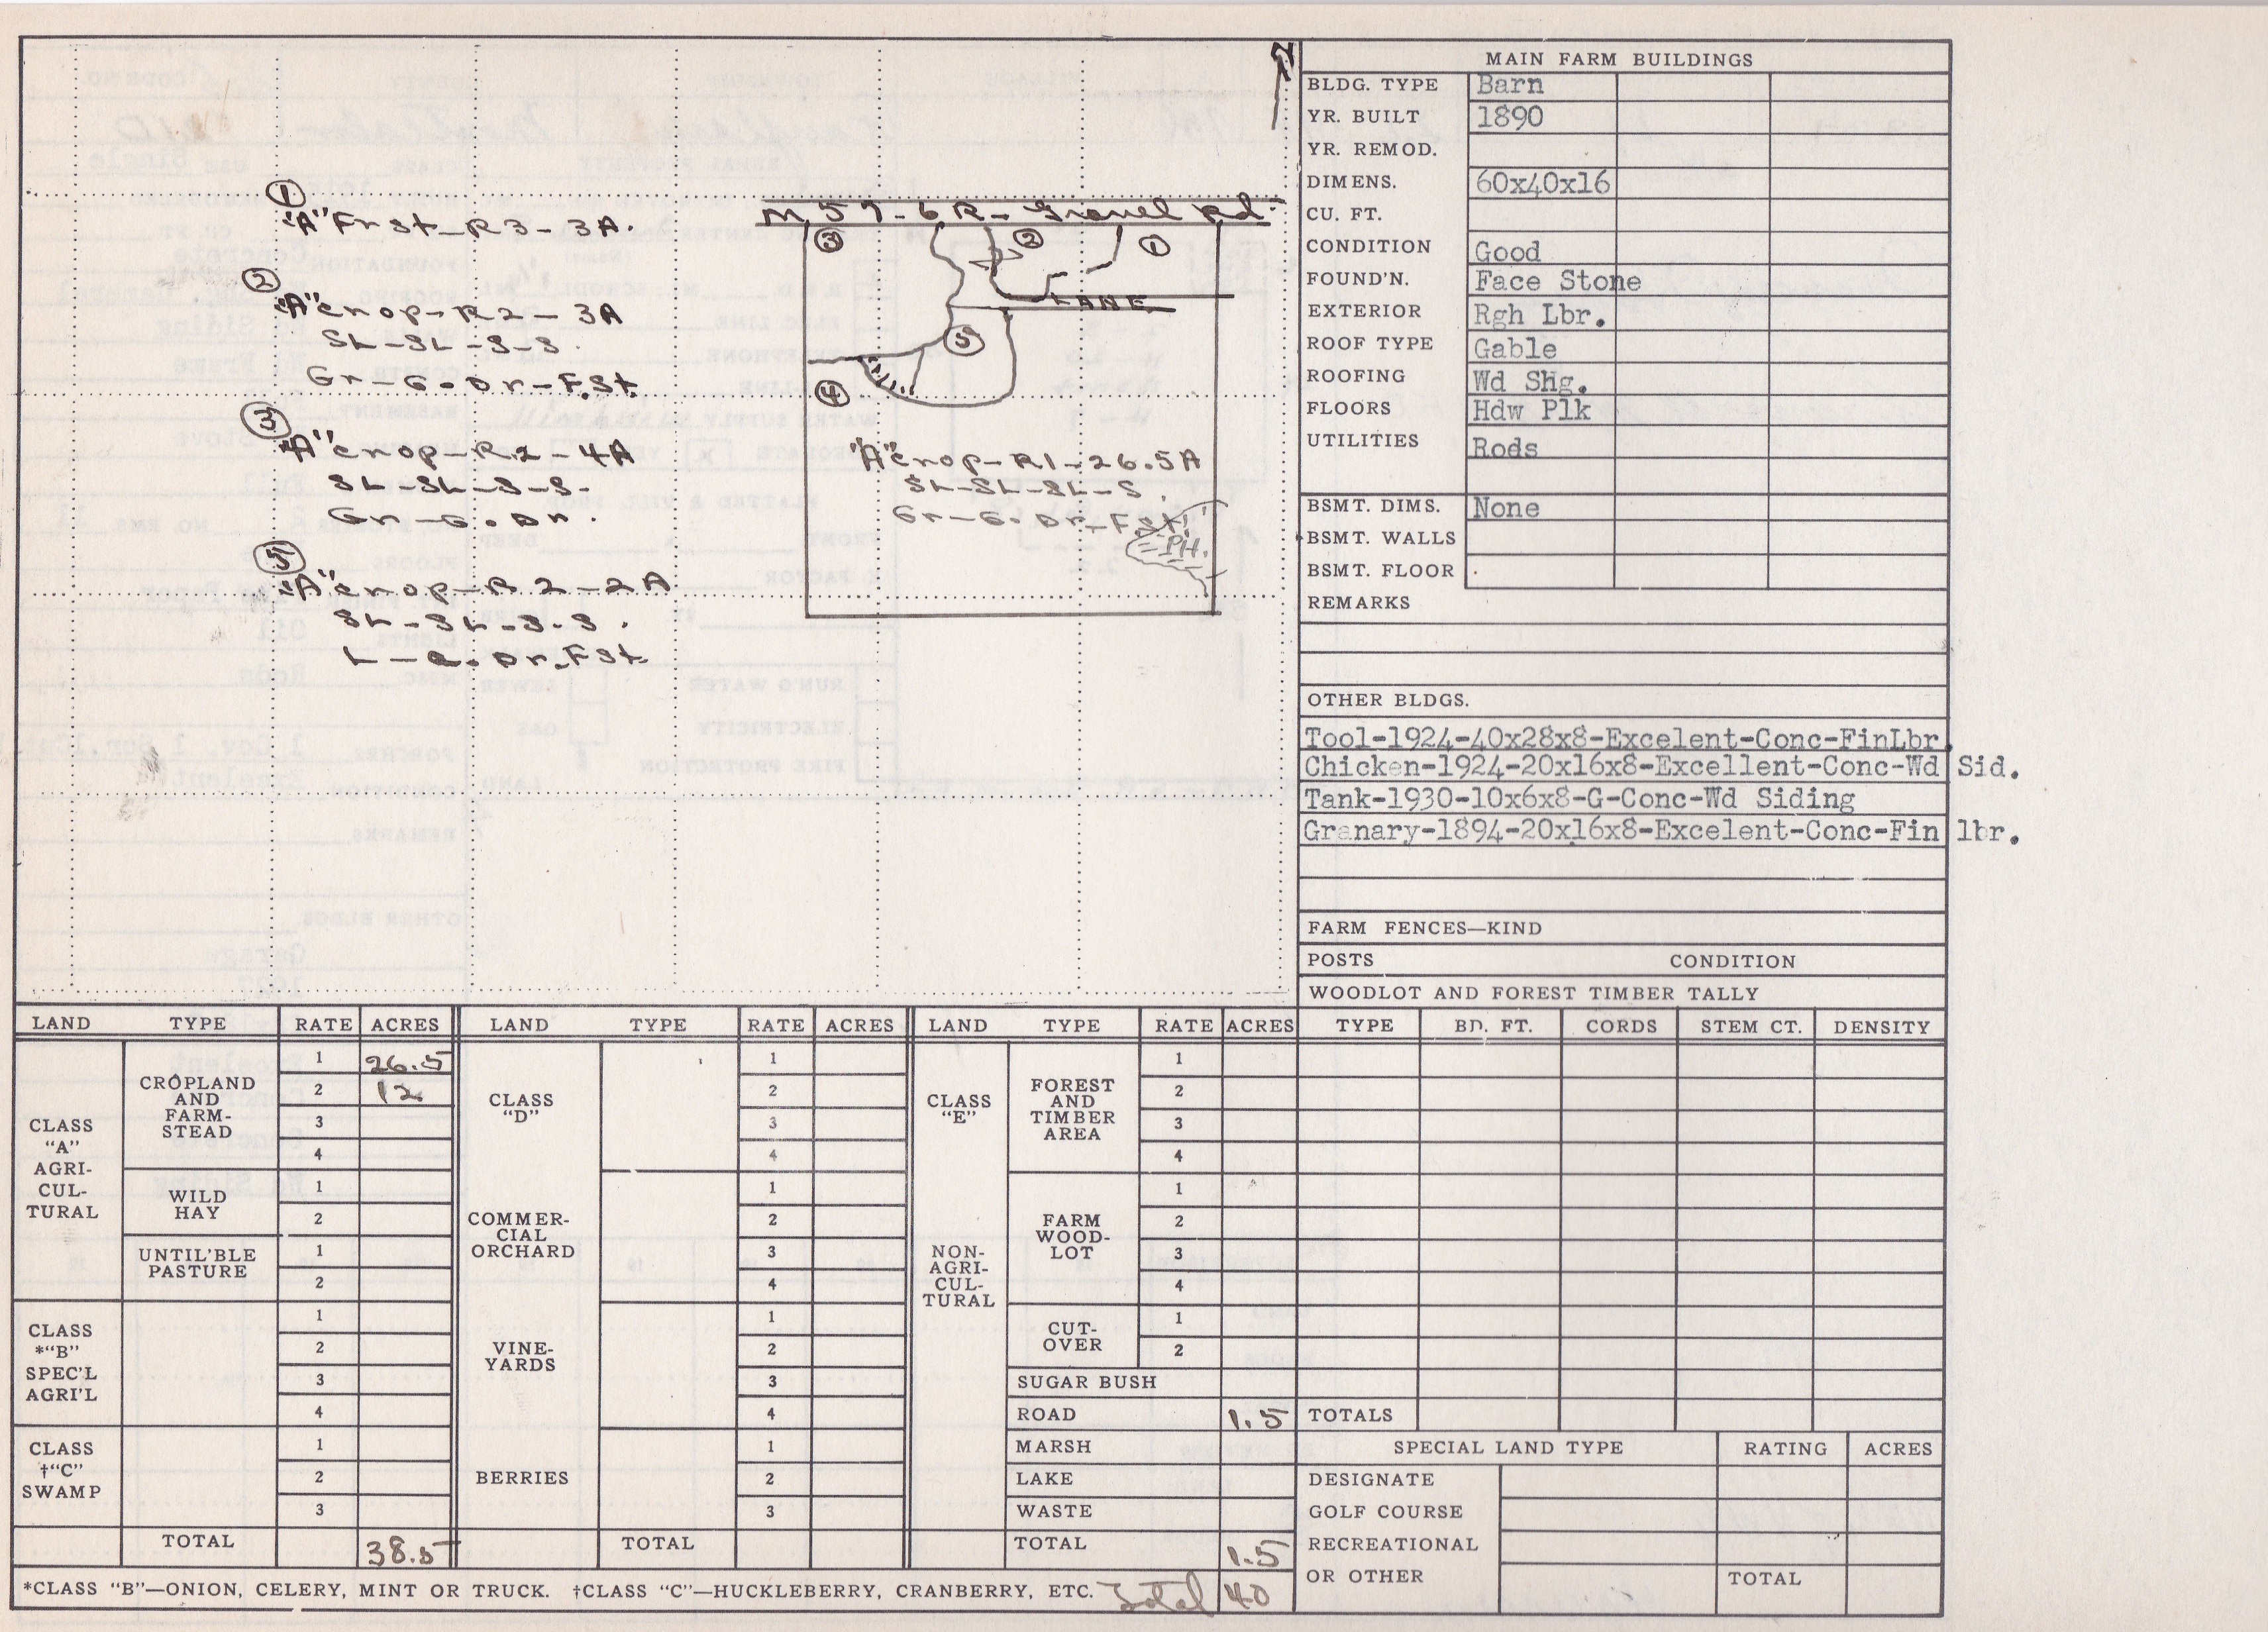 N
①
"A" Frst-R3-3A.
②
"A" crop-R2-3A
SL-SL-S-S.
Gr-G.Dr-F.St.
③
"A" crop-R2-4A
SL-SL-S-S-
Gr-G.Dr.
⑤
"A" crop-R2-2A
SL-SL-S-S.
L-G.Dr.FSt
M 57-6R-Gravel Rd.
③ ② ①
LANE
⑤
④
"A" crop-R1-26.5A
SL-SL-SL-S.
Gr-G.Dr-Fst.
PH.
MAIN FARM BUILDINGS
BLDG. TYPE Barn
YR. BUILT 1890
YR. REMOD.
DIMENS. 60x40x16
CU. FT.
CONDITION Good
FOUND'N. Face Stone
EXTERIOR Rgh Lbr.
ROOF TYPE Gable
ROOFING Wd Shg.
FLOORS Hdw Plk
UTILITIES Rods
BSMT. DIMS. None
BSMT. WALLS
BSMT. FLOOR
REMARKS
OTHER BLDGS.
Tool-1924-40x28x8-Excelent-Conc-FinLbr.
Chicken-1924-20x16x8-Excellent-Conc-Wd Sid.
Tank-1930-10x6x8-G-Conc-Wd Siding
Granary-1894-20x16x8-Excelent-Conc-Fin lbr.
FARM FENCES—KIND
POSTS CONDITION
WOODLOT AND FOREST TIMBER TALLY
TYPE BD. FT. CORDS STEM CT. DENSITY
TOTALS
SPECIAL LAND TYPE RATING ACRES
DESIGNATE
GOLF COURSE
RECREATIONAL
OR OTHER TOTAL
LAND TYPE RATE ACRES
CLASS
"A"
AGRI-
CUL-
TURAL
CROPLAND
AND
FARM-
STEAD
1 26.5
2 12
3
4
WILD
HAY
1
2
UNTIL'BLE
PASTURE
1
2
CLASS
*"B"
SPEC'L
AGRI'L
1
2
3
4
CLASS
†"C"
SWAMP
1
2
3
TOTAL 38.5
LAND TYPE RATE ACRES
CLASS
"D"
1
2
3
4
COMMER-
CIAL
ORCHARD
1
2
3
4
VINE-
YARDS
1
2
3
4
BERRIES
1
2
3
TOTAL
LAND TYPE RATE ACRES
CLASS
"E"
NON-
AGRI-
CUL-
TURAL
FOREST
AND
TIMBER
AREA
1
2
3
4
FARM
WOOD-
LOT
1
2
3
4
CUT-
OVER
1
2
SUGAR BUSH
ROAD 1.5
MARSH
LAKE
WASTE
TOTAL 1.5
*CLASS "B"—ONION, CELERY, MINT OR TRUCK. †CLASS "C"—HUCKLEBERRY, CRANBERRY, ETC. Total 40